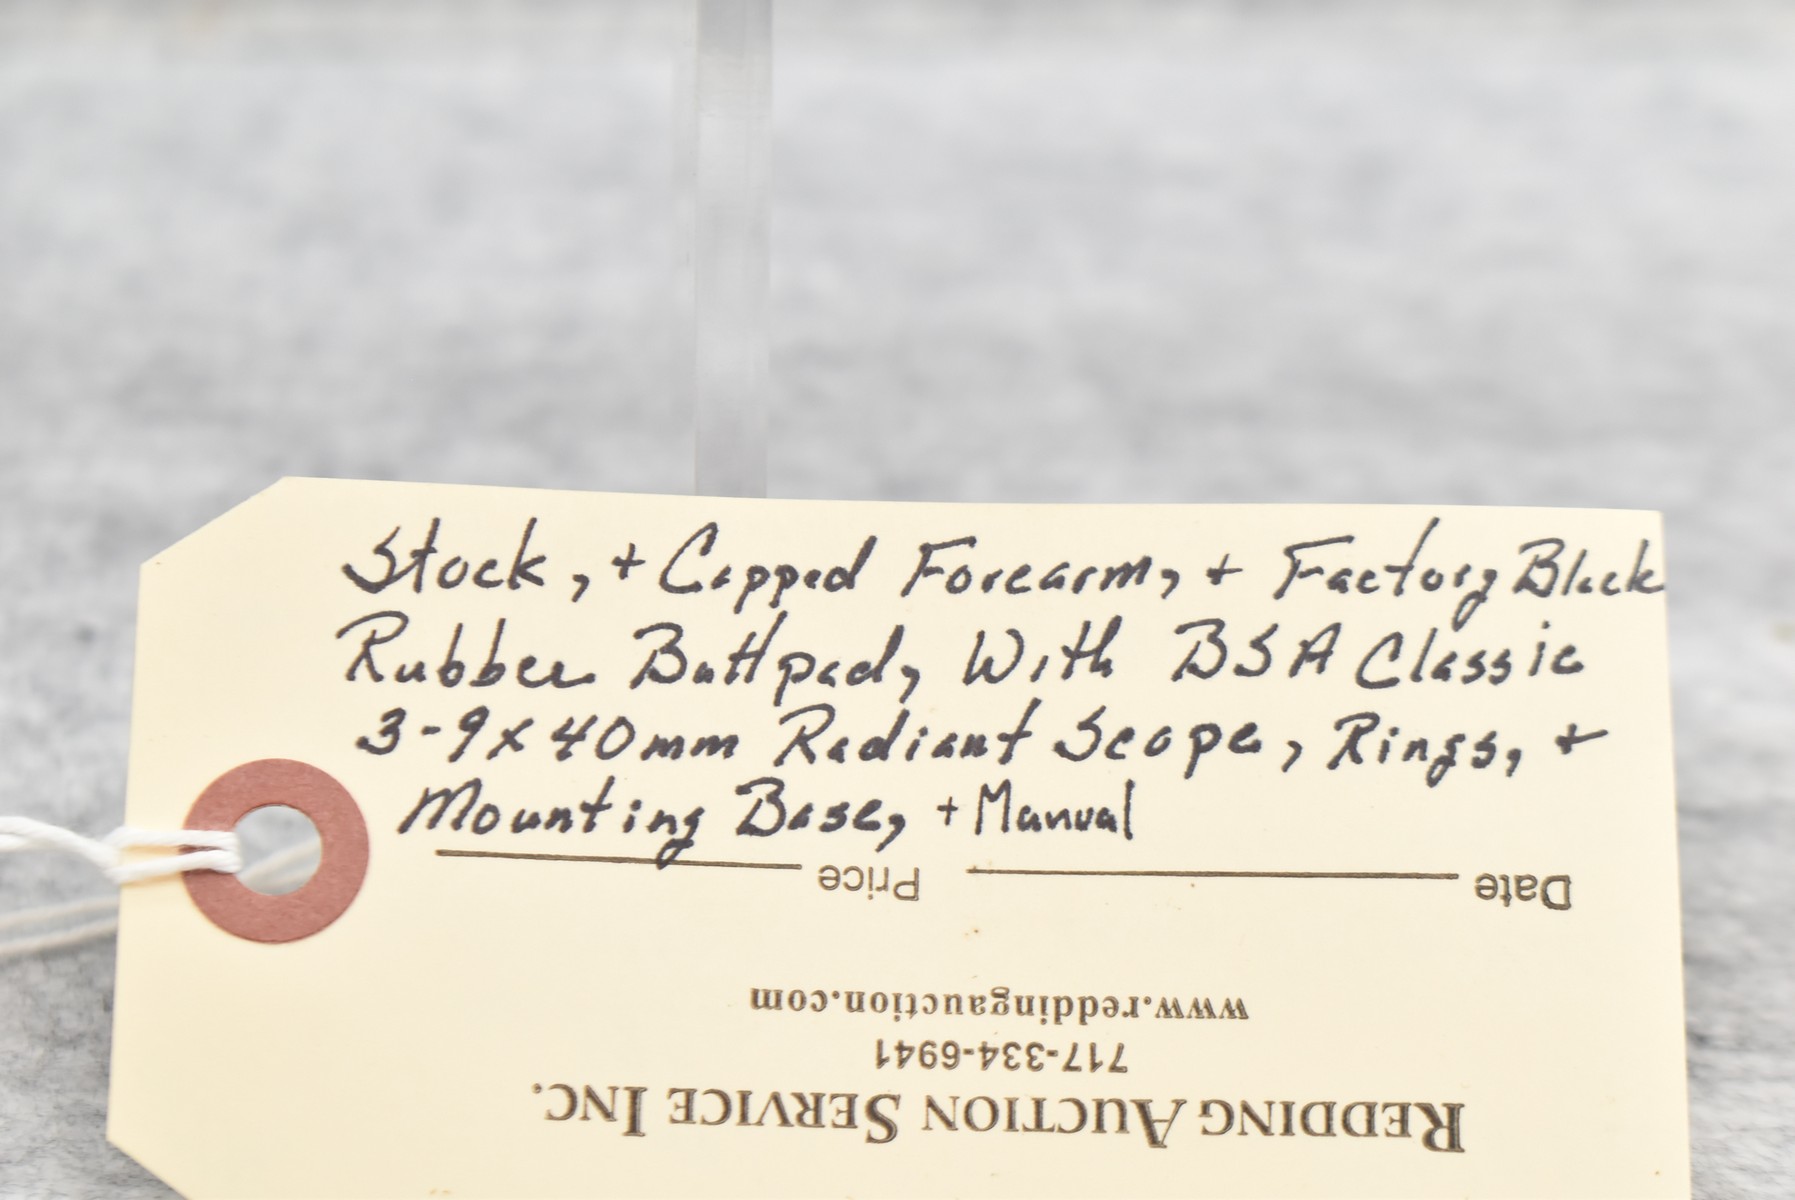 Stock, + Capped Forearm, + Factory Black
Rubber Buttpad, With BSA Classic
3-9x40mm Radiant Scope, Rings, +
Mounting Base, + Manual
Date Price
www.reddingauction.com
717-334-6941
REDDING AUCTION SERVICE INC.